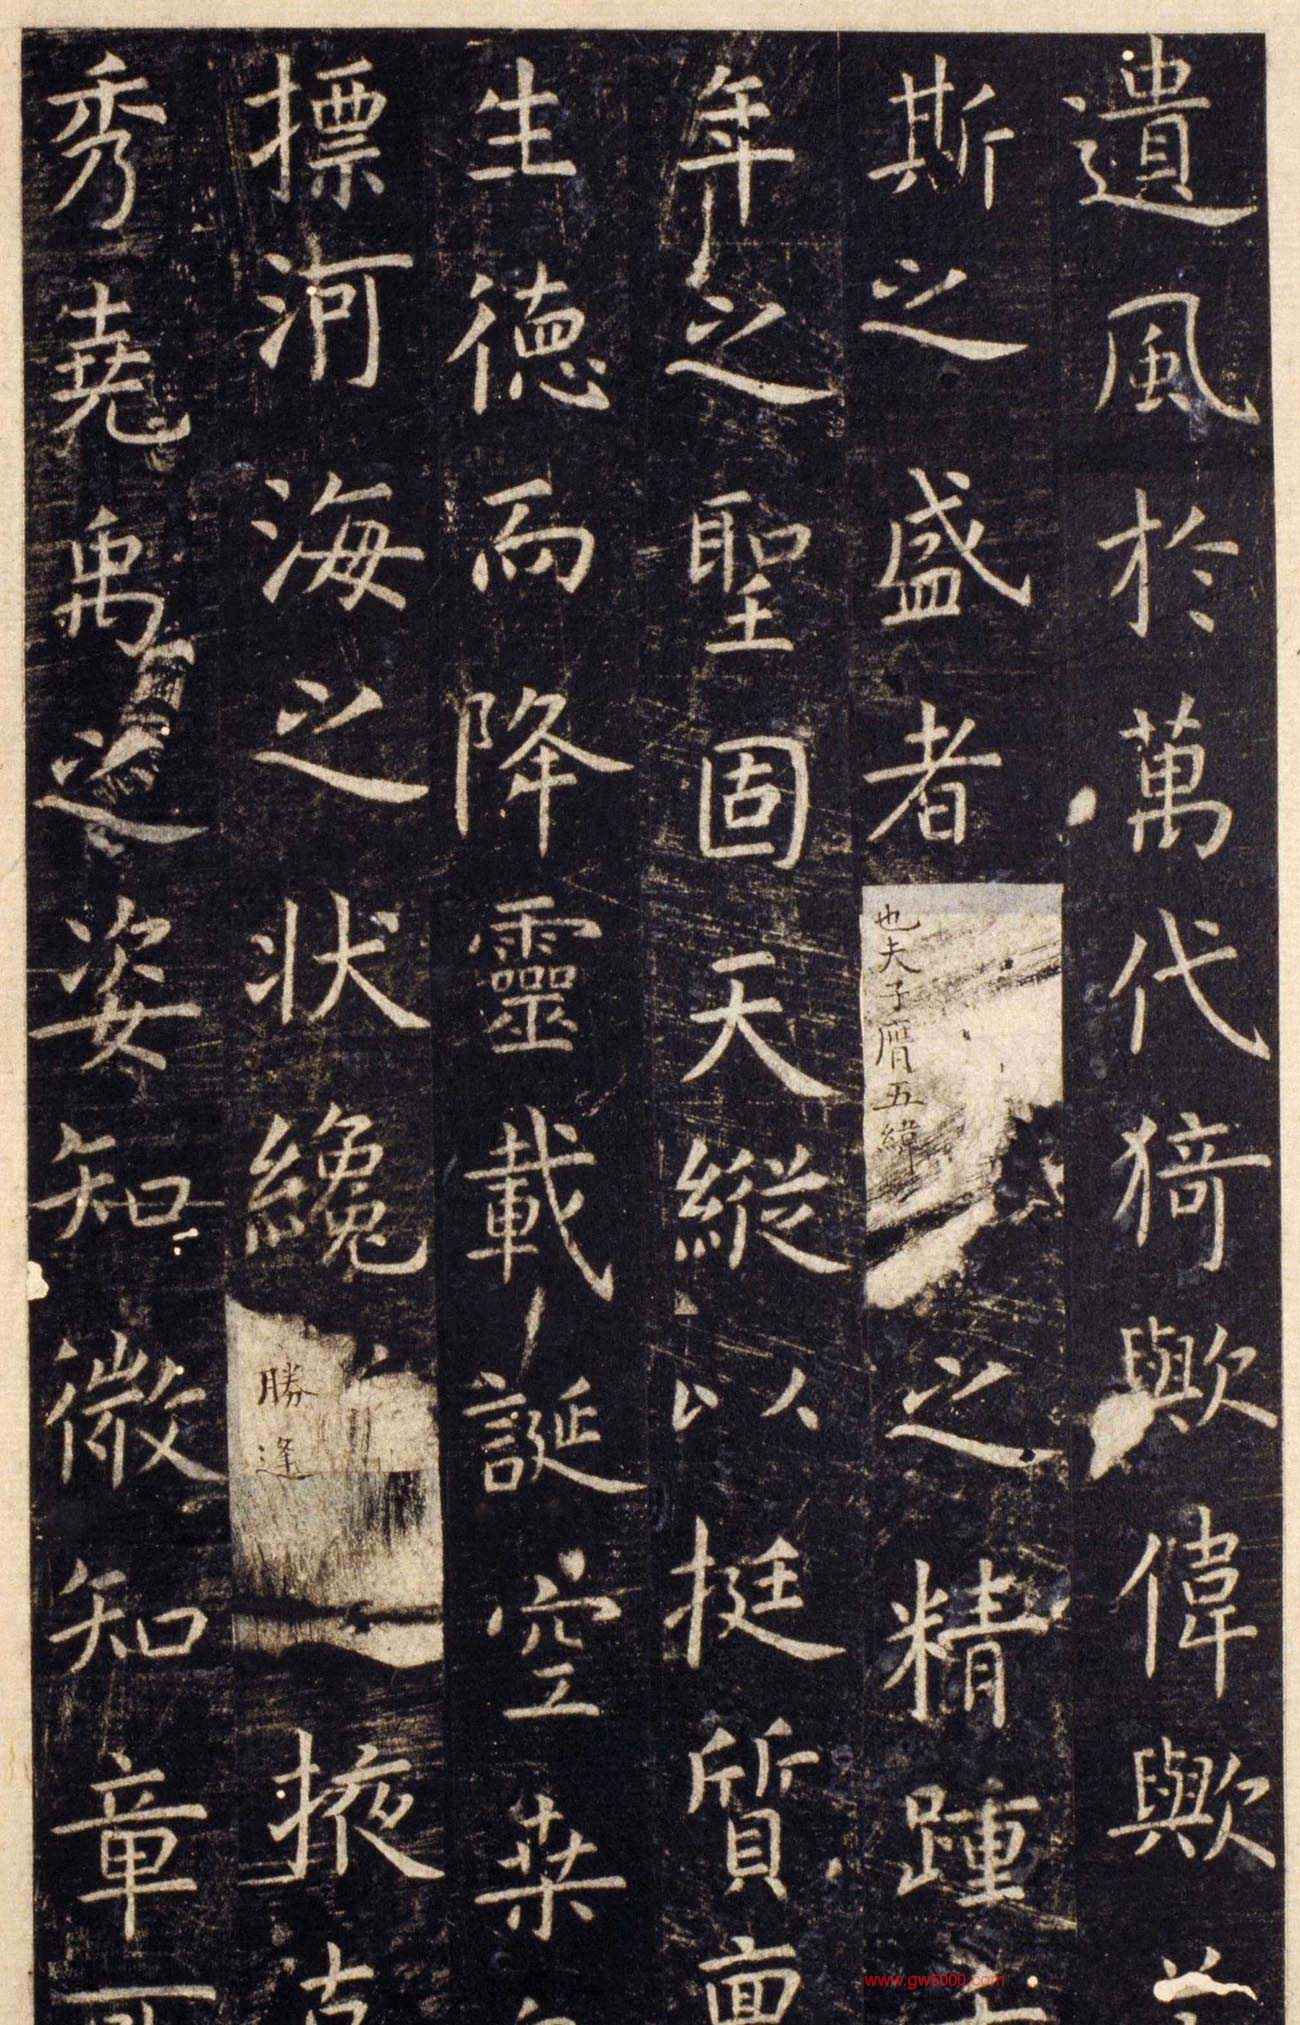 遺風於萬代猗歟偉歟
斯之盛者也夫子膺五緯之精踵
年之聖固天縱以挺質稟
生德而降靈載誕空桒
摽河海之狀纔勝逢掖
秀堯禹之姿知微知章
www.gw5000.com